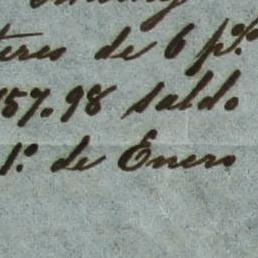 teres de 6 p%
157.98 saldo
1º de Enero